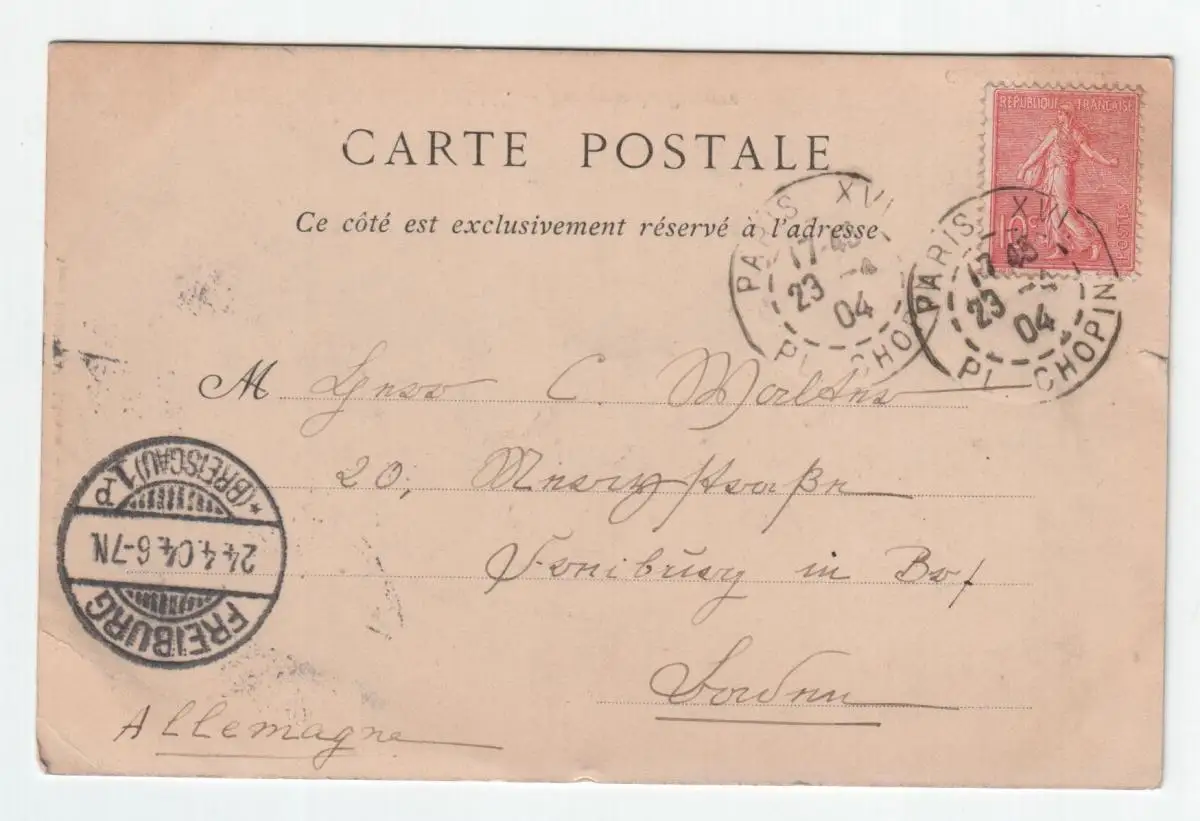 CARTE POSTALE
Ce côté est exclusivement réservé à l'adresse
RÉPUBLIQUE FRANÇAISE
10c
POSTES
PARIS XVII
17-45
23 -4
04
PL CHOPIN
PARIS XVII
17 45
23 -4
04
PL CHOPIN
M Herr C.
20, Merzstraße
Freiburg in Br/
Baden
Allemagne
FREIBURG
24.4.04.6-7N.
*(BREISGAU) 1 P